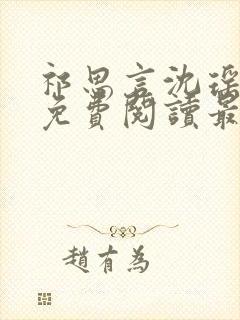 祁思言沈瑶
免費閱讀最
趙有為